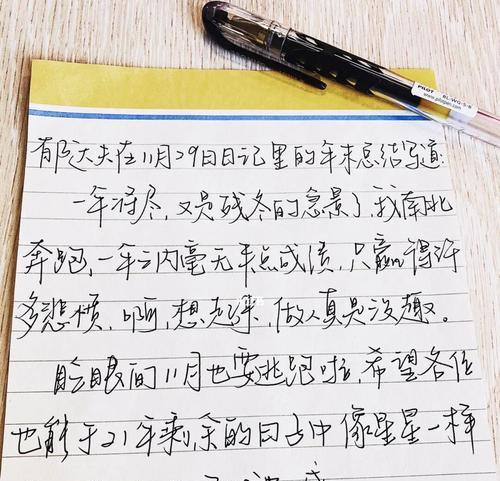 PILOT BL-WG-5-B
www.pilotpen.com
郁达夫在11月29日日记里的年末总结写道:
一年将尽,又是残冬的急景了,我南北
奔跑,一年之内毫无半点成绩,只赢得许
多悲愤,啊,想起来,做人真是没趣。
眨眼间11月也要逃跑啦,希望各位
也能于21年剩余的日子中像星星一样